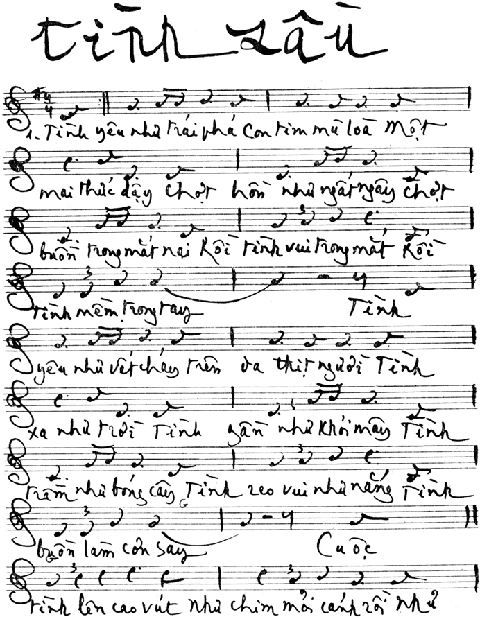 tình sầu
1. Tình yêu như trái phá con tim mù loà Một
mai thức dậy chợt hồn như ngất ngây chợt
buồn trong mắt nai Rồi tình vui trong mắt Rồi
tình mềm trong tay Tình
yêu như vết cháy trên da thịt người Tình
xa như trời Tình gần như khói mây Tình
trầm như bóng cây Tình reo vui như nắng Tình
buồn làm cơn say Cuộc
tình lên cao vút như chim mỏi cánh rồi như